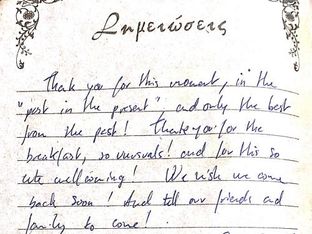 Σημειώσεις
Thank you for this moment, in the
"past in the present", and only the best
from the past! Thank you for the
breakfast, so unusuals! and for this so
cute wellcoming! We wish we come
back soon! And tell our friends and
family to come!